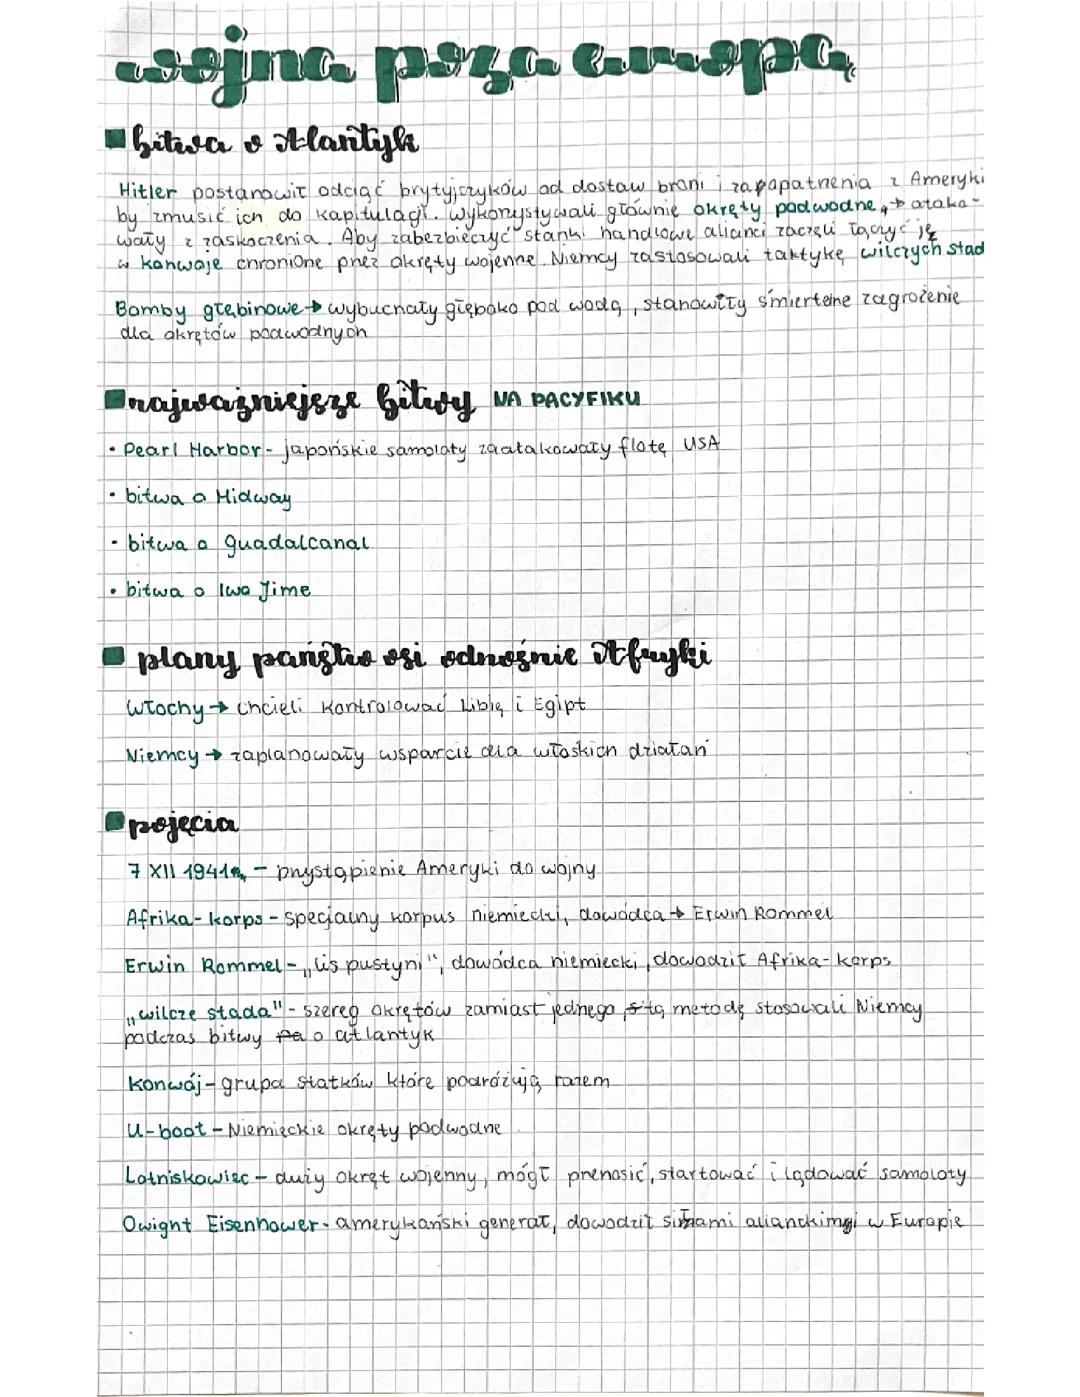 wojna poza europą
bitwa o Atlantyk
Hitler postanowił odciąć brytyjczyków od dostaw broni i zapapatrzenia z Ameryki
by zmusić ich do kapitulacji. Wykorzystywali głównie okręty podwodne, → atako-
wały z zaskoczenia. Aby zabezbieczyć statki handlowe alianci zaczęli łączyć je
w konwoje chronione przez okręty wojenne. Niemcy zastosowali taktykę wilczych stad
Bomby głębinowe → wybuchały głęboko pod wodą, stanowiły śmiertelne zagrożenie
dla okrętów podwodnych
najważniejsze bitwy NA PACYFIKU
• Pearl Harbor - japońskie samoloty zaatakowały flotę USA
• bitwa o Midway
• bitwa o Guadalcanal
• bitwa o Iwo Jime
plany państw osi odnośnie Afryki
Włochy → chcieli kontrolować Libię i Egipt
Niemcy → zaplanowały wsparcie dla włoskich działań
pojęcia
7 XII 1941r. - przystąpienie Ameryki do wojny
Afrika-korps - specjalny korpus niemiecki, dowódca → Erwin Rommel
Erwin Rommel - „lis pustyni", dowódca niemiecki, dowodził Afrika-korps
„wilcze stada" - szereg okrętów zamiast jednego, tą metodę stosowali Niemcy
podczas bitwy o atlantyk
Konwój - grupa statków które podróżują razem
U-boot - Niemieckie okręty podwodne
Lotniskowiec - duży okręt wojenny, mógł przenosić, startować i lądować samoloty
Dwight Eisenhower - amerykański generał, dowodził siłami alianckimi w Europie